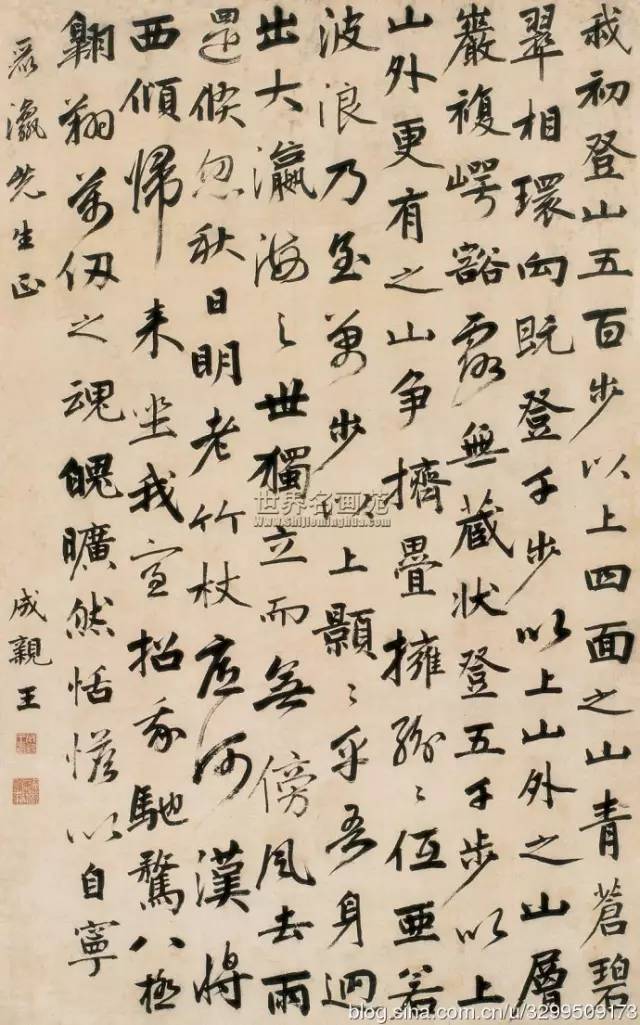 我初登山五百步以上四面之山青蒼碧
翠相環向既登千步以上山外之山層
巖複崿豁露無蔵状登五千步以上
山外更有之山争擠疊擁紛〻伍亜若
波浪乃至万步以上顥〻乎吾身迥
出大瀛海之世獨立而無傍風去雨
還倏忽秋日明老竹杖河漢将
西傾歸来坐我室招我馳騖八極
翱翔萬仞之魂魄曠然恬憺以自寧
瀛先生正
成親王
世界名画苑
www.shijieminghua.com
blog.sina.com.cn/u/3299509173